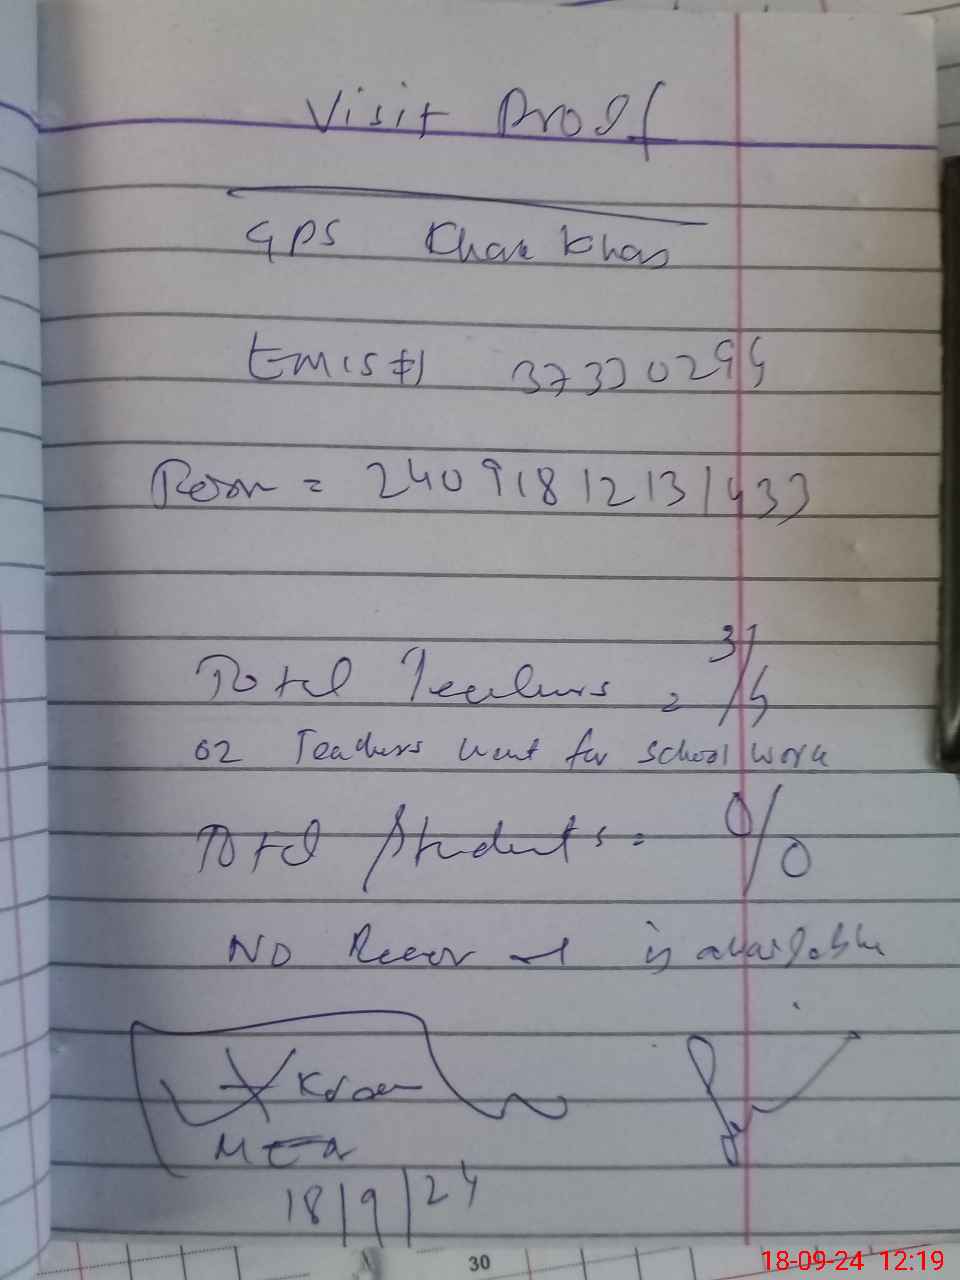 Visit Proof
GPS Khar Khas
Emis # 37330299
Room = 24091812131433
Total Teachers = 3/5
02 Teachers went for school work
Total Students = 0/0
No Record is available
Akram
MEA
18/9/24
30
18-09-24 12:19